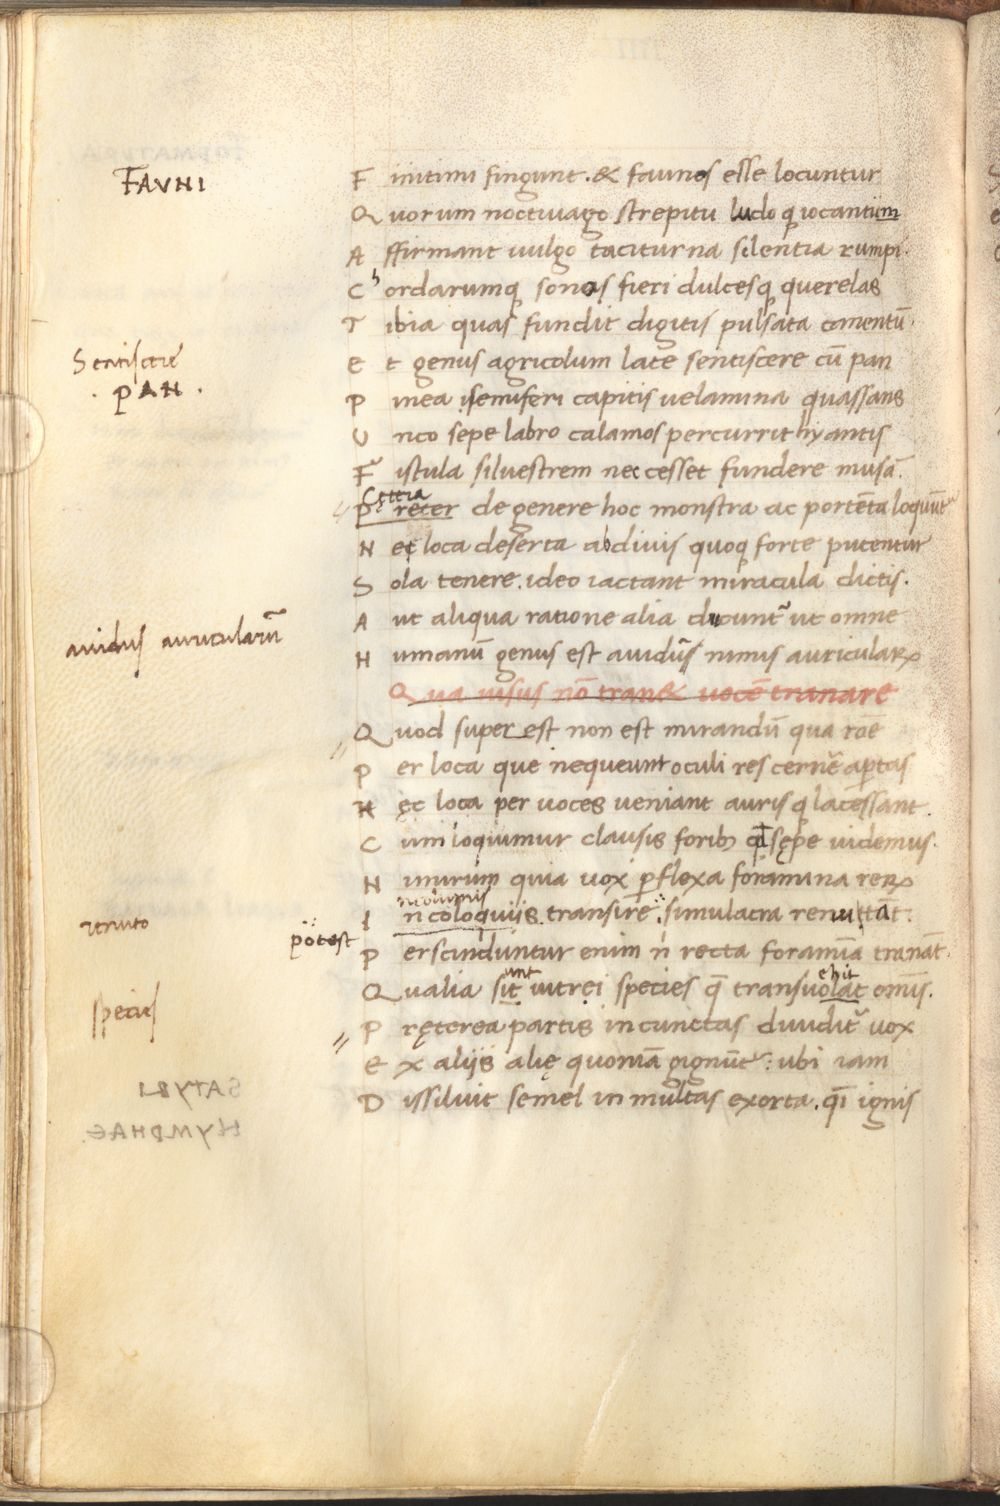 FAVNI
F initimi fingunt . & faunos esse locuntur
Q uorum noctiuago strepitu ludo q iocantum
A ffirmant uulgo taciturna silentia rumpi.
C h ordarumq sonos fieri dulcesq querelas
T ibia quas fundit digitis pulsata canentū.
E t genus agricolum late sentiscere cū pan
Sentiscere
. PAN .
P inea semiferi capitis uelamina quassans
U nco sepe labro calamos percurrit hyantis
F istula siluestrem nec cesset fundere musā.
Cęttra
P reter de genere hoc monstra ac portēta loqūnt
N ec loca deserta abdiuis quoq forte putentur
S ola tenere . ideo iactant miracula dictis .
A ut aliqua ratione alia ducunt ut omne
auidus auricularū
H umanū genus est auidus nimis auricularꝝ
Q ua uisus nō tran& uocē tranare
Q uod super est non est mirandū qua rōe
P er loca que nequeunt oculi res cernē aptas
H ęc loca per uoces ueniant auris q lacessant .
C um loqiumur clausis forib sępe uidemus .
N imirum quia uox pflexa foramina rerꝝ
incolumis
I n coloquiis transire : simulacra renutāt .
renuto
potest
P erscinduntur enim ń recta foramīa tranāt .
unt ehit
Q ualia sīt uitrei species q̄ transuolat omīs .
species
P ręterea partis in cunctas diuidit uox
E x aliis alię quoniā gignūt : ubi iam
D issiluit semel in multas exorta . q̄i ignis
SATYRI
NYMPHAE.